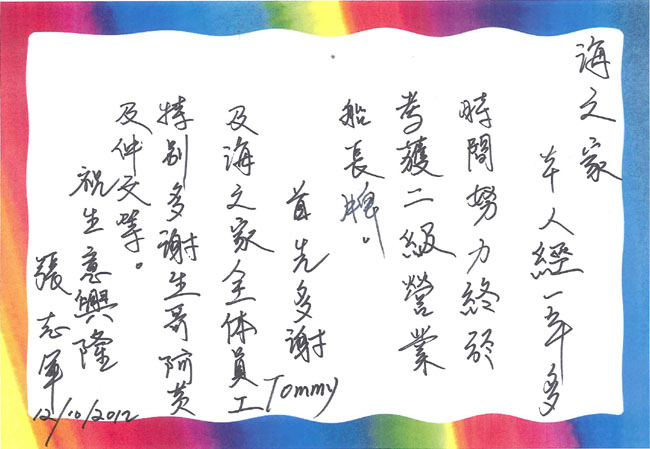 海文家
本人經一年多
時間努力終於
考獲二級營業
船長牌。
首先多謝Tommy
及海文家全体員工
特别多謝生哥阿黄
及仲文等。
祝生意興隆
張志軍
12/10/2012